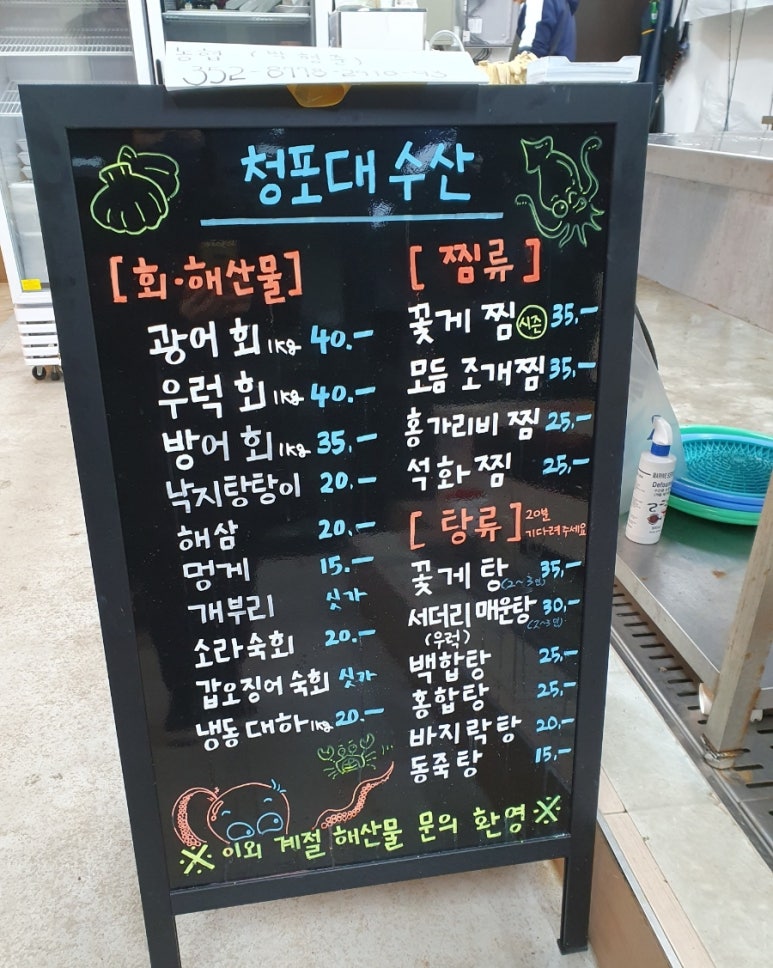 농협
352-8778-2710-43
청포대 수산
[회·해산물]
광어 회 1kg 40.-
우럭 회 1kg 40.-
방어 회 1kg 35.-
낙지탕탕이 20.-
해삼 20.-
멍게 15.-
개부리 싯가
소라숙회 20.-
갑오징어 숙회 싯가
냉동 대하 1kg 20.-
[찜류]
꽃게 찜 시즌 35.-
모듬 조개찜 35.-
홍가리비 찜 25.-
석화 찜 25.-
[탕류] 20분
기다려주세요
꽃게 탕 (2~3인) 35.-
서더리 매운탕 30.-
(우럭) (2~3인)
백합탕 25.-
홍합탕 25.-
바지락탕 20.-
동죽탕 15.-
※ 이외 계절 해산물 문의 환영 ※